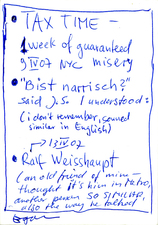 • TAX TIME –
1 week of guaranteed
9 IV 07 NYC misery
• "Bist narrisch?"
said J. So I understood:
(i don't remember, sounded
similar in English)
13 IV 07
• Ralf Weisshaupt
(an old friend of mine –
thought it's him in Metro,
another person SO SIMILAR,
also the way he talked